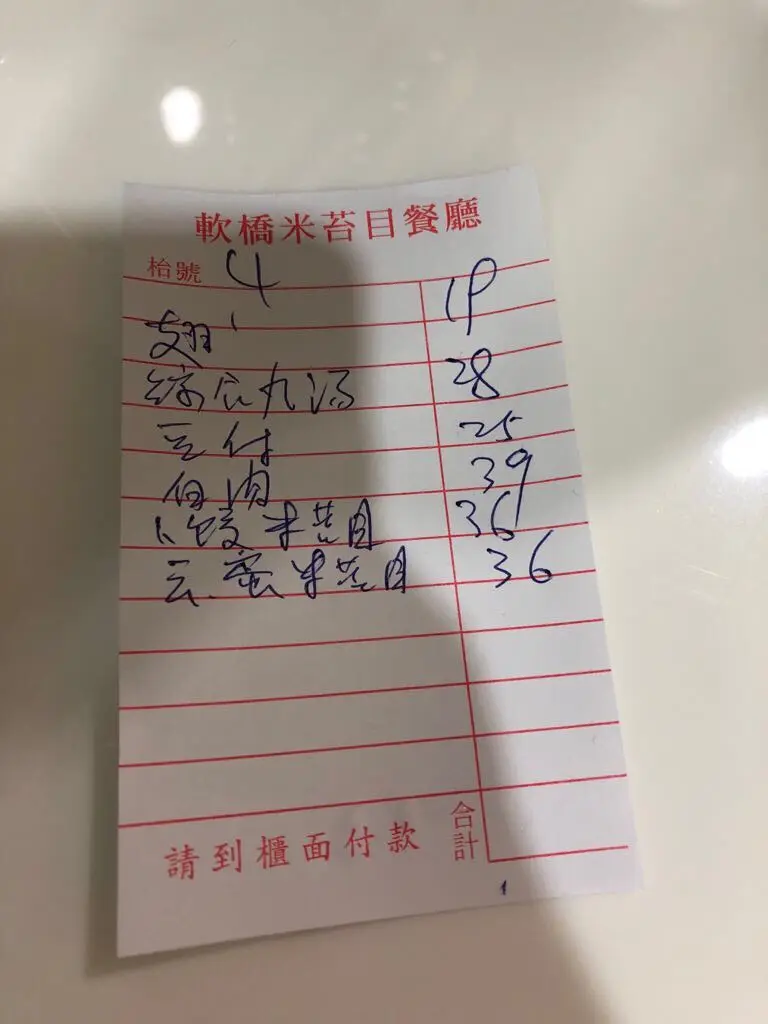 軟橋米苔目餐廳
枱號 4
1P
翅
丸湯 28
豆付 25
白肉 39
米苔目 36
米苔目 36
請到櫃面付款 合計